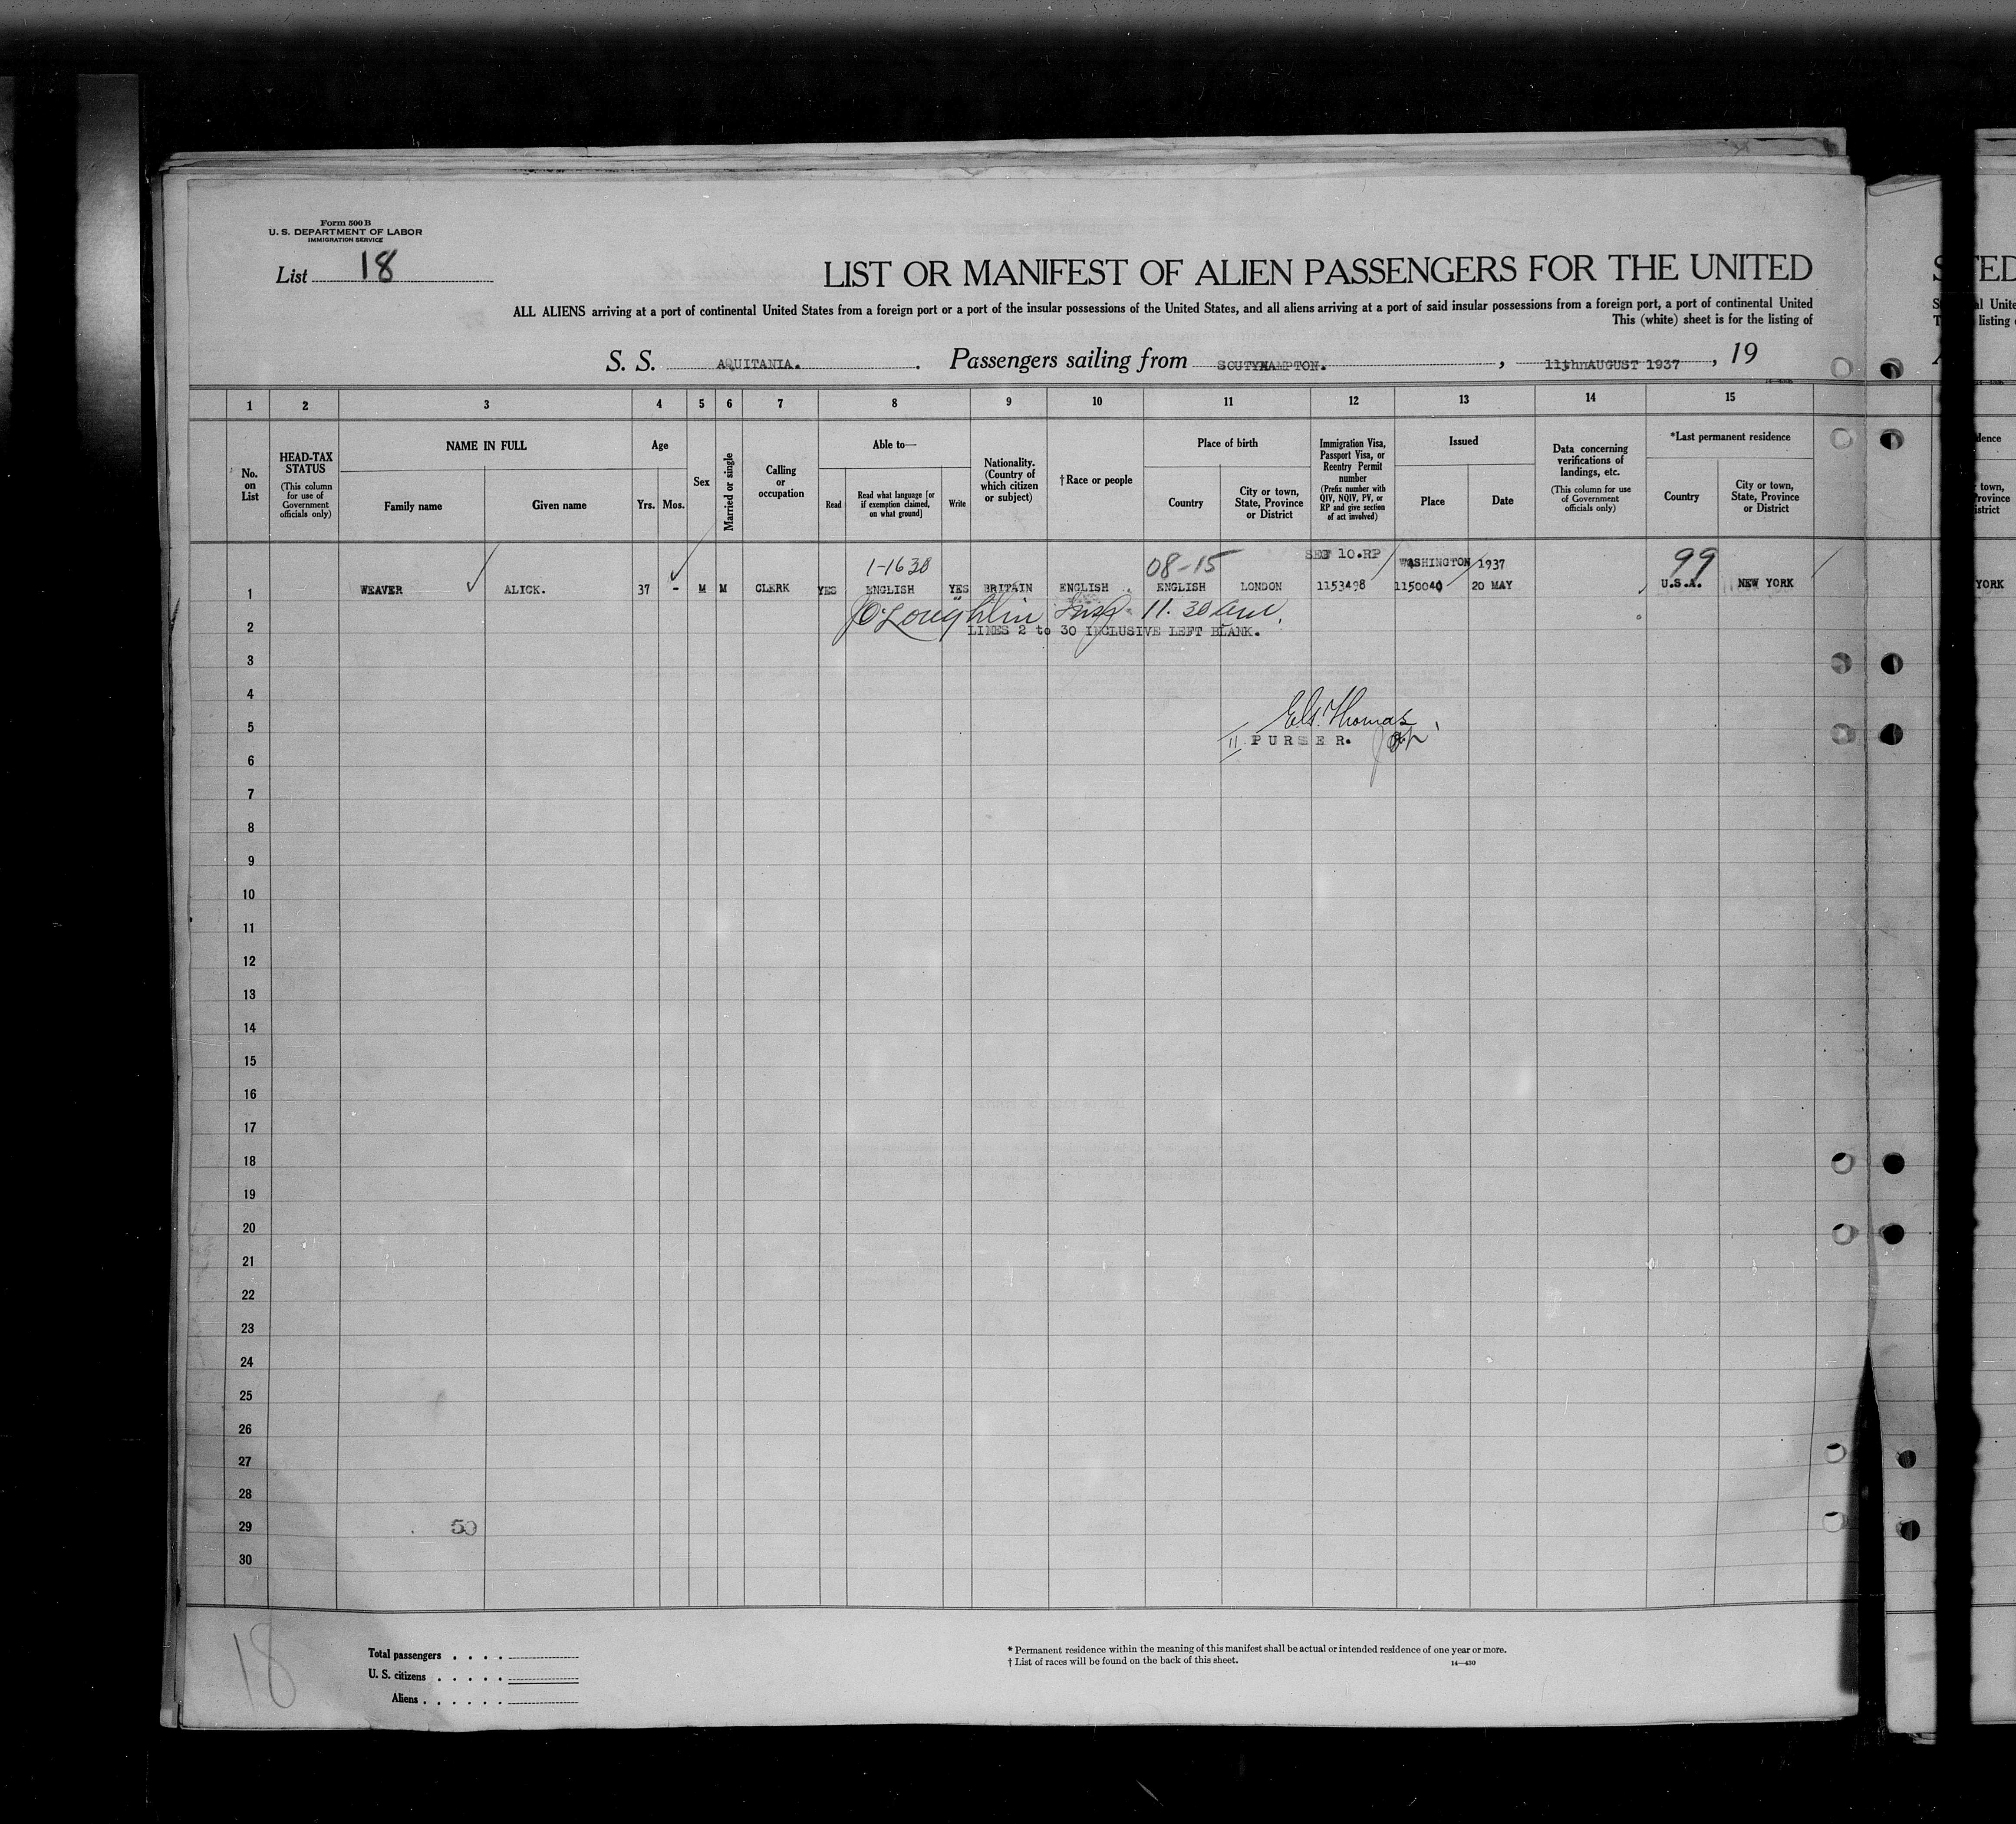 Form 500 B
U. S. DEPARTMENT OF LABOR
IMMIGRATION SERVICE
List 18
LIST OR MANIFEST OF ALIEN PASSENGERS FOR THE UNITED
ALL ALIENS arriving at a port of continental United States from a foreign port or a port of the insular possessions of the United States, and all aliens arriving at a port of said insular possessions from a foreign port, a port of continental United
This (white) sheet is for the listing of
S. S. AQUITANIA. Passengers sailing from SOUTYHAMPTON. , 11thnAUGUST 1937 , 19
1 2 3 4 5 6 7 8 9 10 11 12 13 14 15
No. on List
HEAD-TAX STATUS (This column for use of Government officials only)
NAME IN FULL
Family name
Given name
Age
Yrs. Mos.
Sex
Married or single
Calling or occupation
Able to—
Read
Read what language [or if exemption claimed, on what ground]
Write
Nationality. (Country of which citizen or subject)
†Race or people
Place of birth
Country
City or town, State, Province or District
Immigration Visa, Passport Visa, or Reentry Permit number (Prefix number with QIV, NQIV, PV, or RP and give section of act involved)
Issued
Place
Date
Data concerning verifications of landings, etc. (This column for use of Government officials only)
*Last permanent residence
Country
City or town, State, Province or District
1-1638 08-15 10.RP WASHINGTON 1937 99
1 WEAVER ALICK. 37 - M M CLERK YES ENGLISH YES BRITAIN ENGLISH ENGLISH LONDON 1153498 1150040 20 MAY U.S.A. NEW YORK
YORK
O'Loughlin Insp. 11.30 am.
2 LINES 2 to 30 INCLUSIVE LEFT BLANK.
3
4
E.G. Thomas
5
PURSER.
6
7
8
9
10
11
12
13
14
15
16
17
18
19
20
21
22
23
24
25
26
27
28
29 50
30
18
Total passengers
U. S. citizens
Aliens
* Permanent residence within the meaning of this manifest shall be actual or intended residence of one year or more.
† List of races will be found on the back of this sheet.
14—430